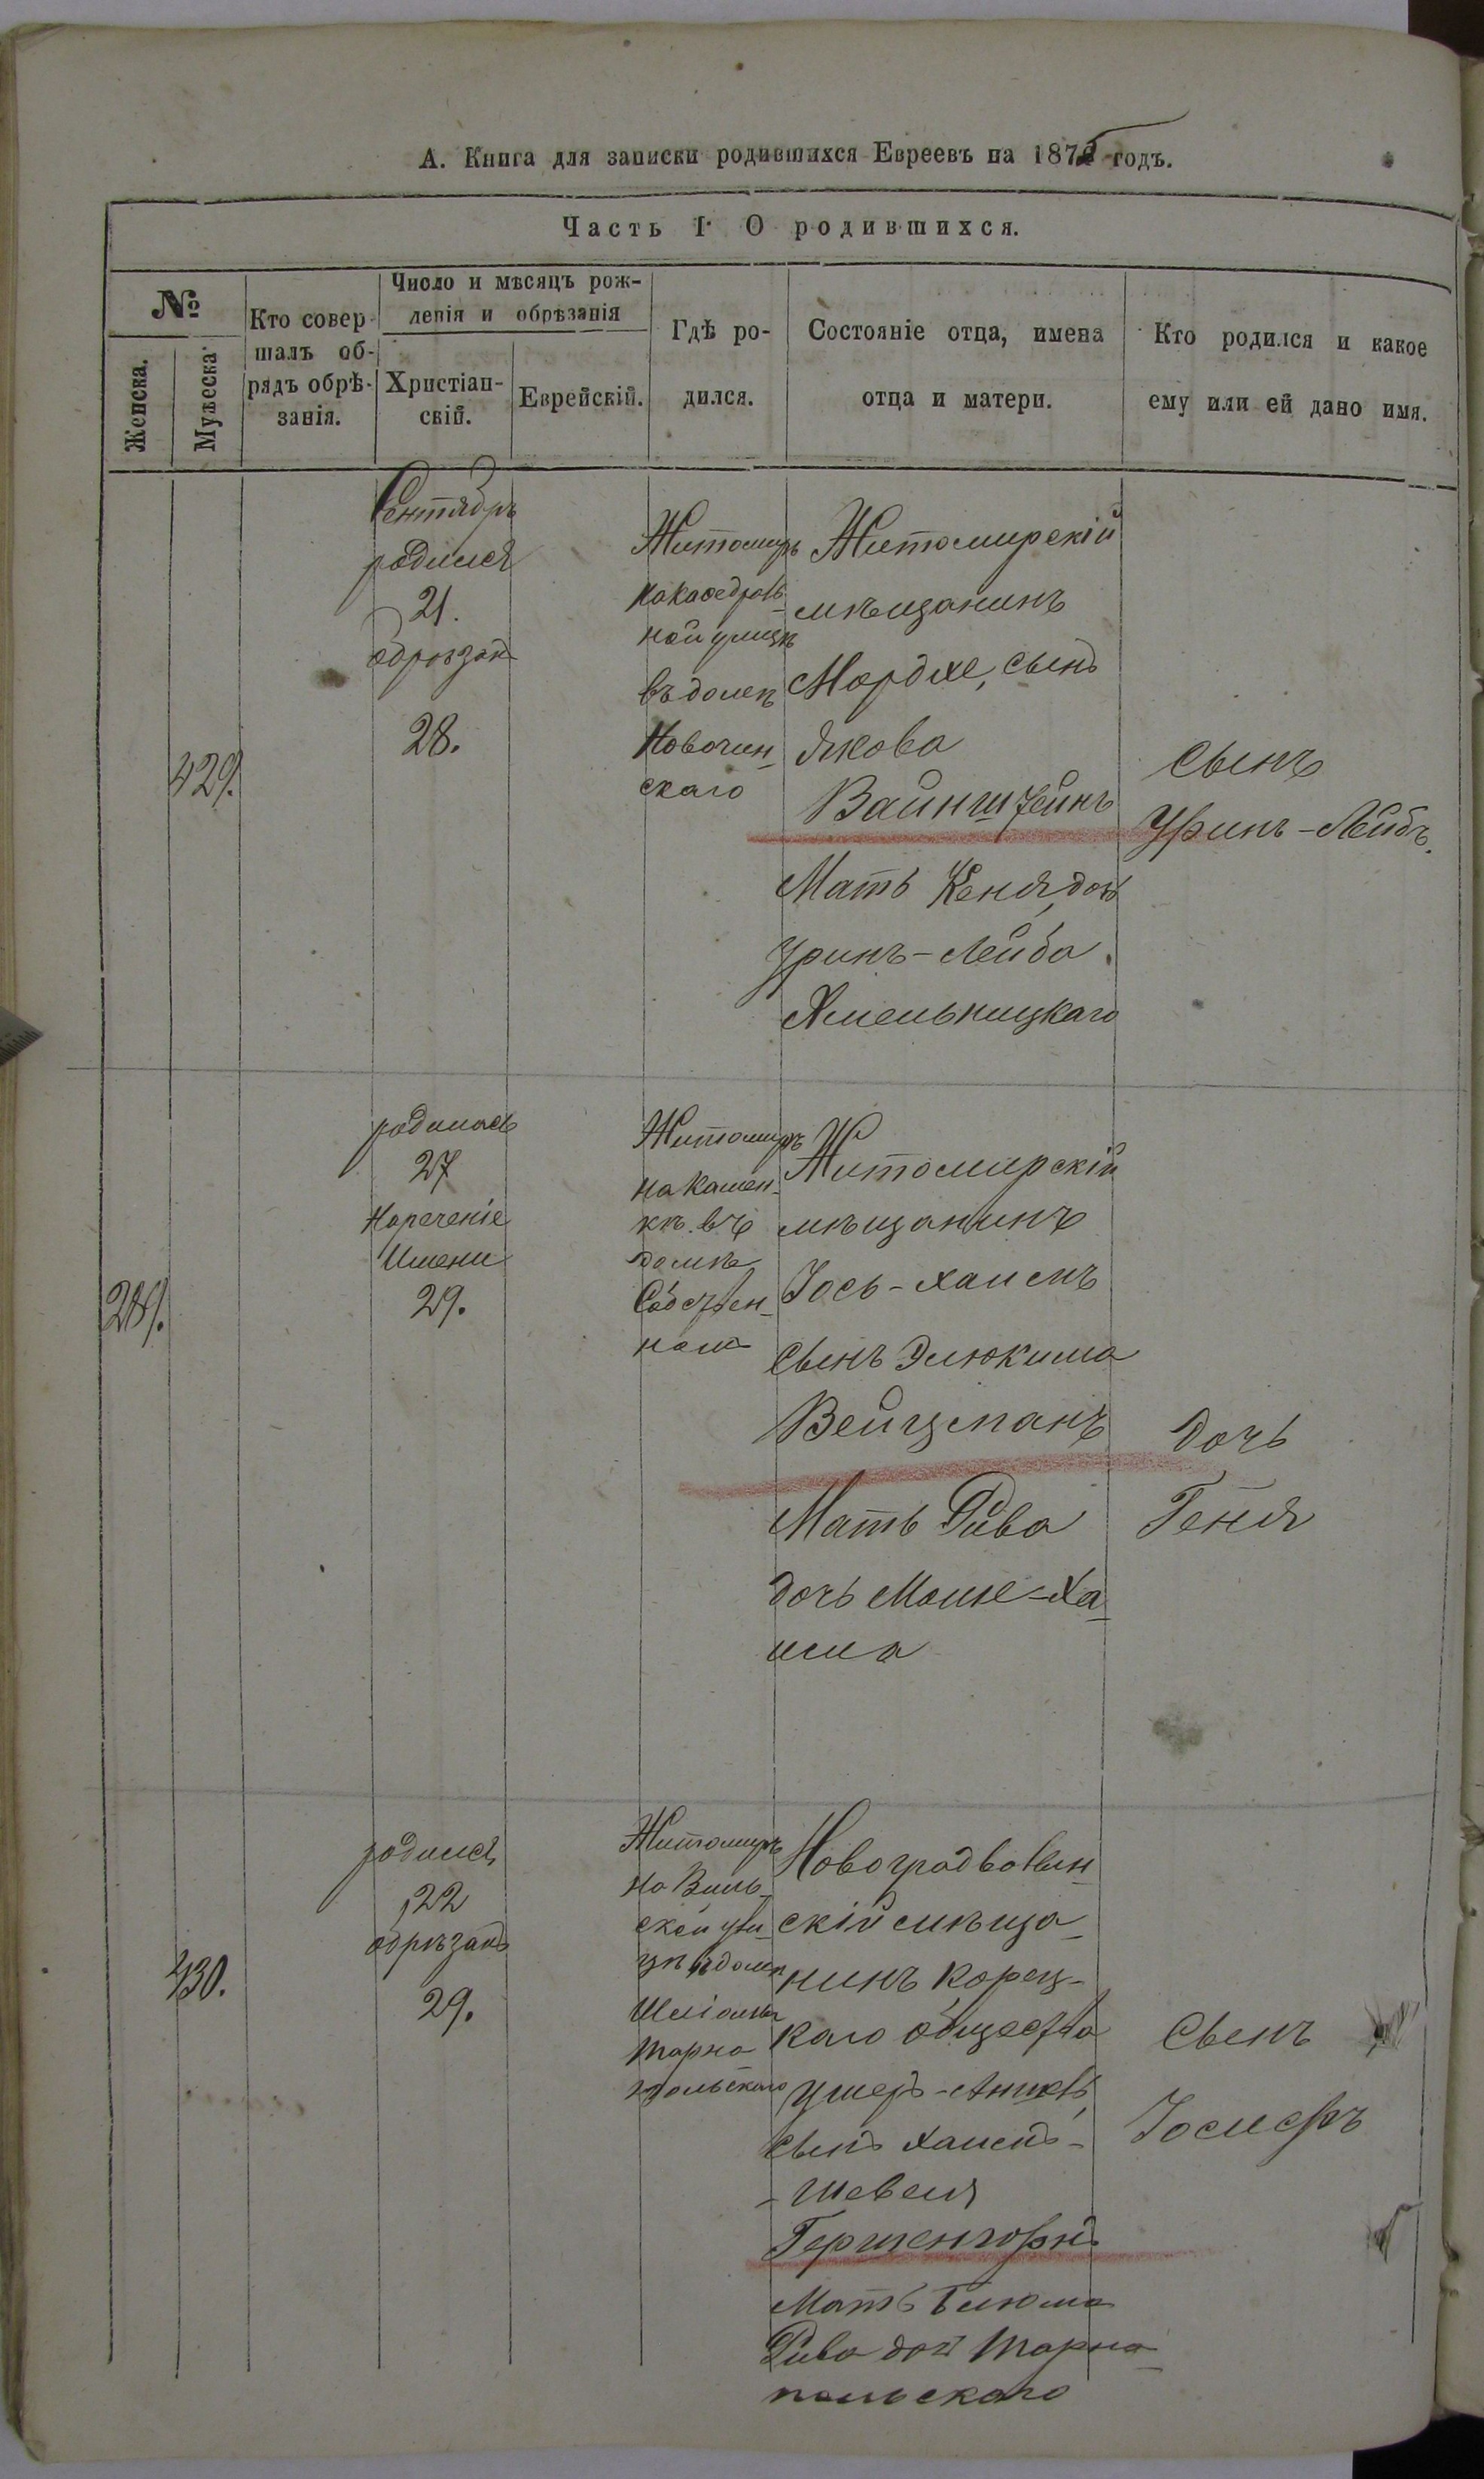 А. Книга для записки родившихся Евреевъ на 1875 годъ.
Часть I О родившихся.
№
Женска.
Мужеска
Кто совер-
шалъ об-
рядъ обрѣ-
занія.
Число и мѣсяцъ рож-
денія и обрѣзанія
Христіан-
скій.
Еврейскій.
Гдѣ ро-
дился.
Состояніе отца, имена
отца и матери.
Кто родился и какое
ему или ей дано имя.
429.
Сентябрь
родился
21.
обрѣзанъ
28.
Житомиръ
на Каѳедраль-
ной улицѣ
въ домѣ
скаго
Житомирскій
мѣщанинъ
Мордхе, сынъ
Якова
Вайнштейнъ
Мать Кеня, дочь
Уринъ-Лейба
Хмельницкаго
Сынъ
Уринъ-Лейбъ.
289.
родилась
27
Нареченіе
Имени
29.
Житомиръ
на Камен-
кѣ въ
домѣ
Собствен-
номъ
Житомирскій
мѣщанинъ
Іось-Хаимъ
Сынъ Элюкима
Вейцманъ
Мать Рива
дочь Мошке-Ха-
има
Дочь
Геня
430.
родился
22
обрѣзанъ
29.
Житомиръ
на Виль-
ской ули-
цѣ въ домѣ
Тарно-
польскаго
Новоградволын-
скій мѣща-
нинъ Корец-
каго общества
Ушеръ-Аншель
сынъ Хаимъ-
-Шевеля
Гершенгорнъ
Мать Блюма
Рива дочь Тарно-
польскаго
Сынъ
Іосифъ